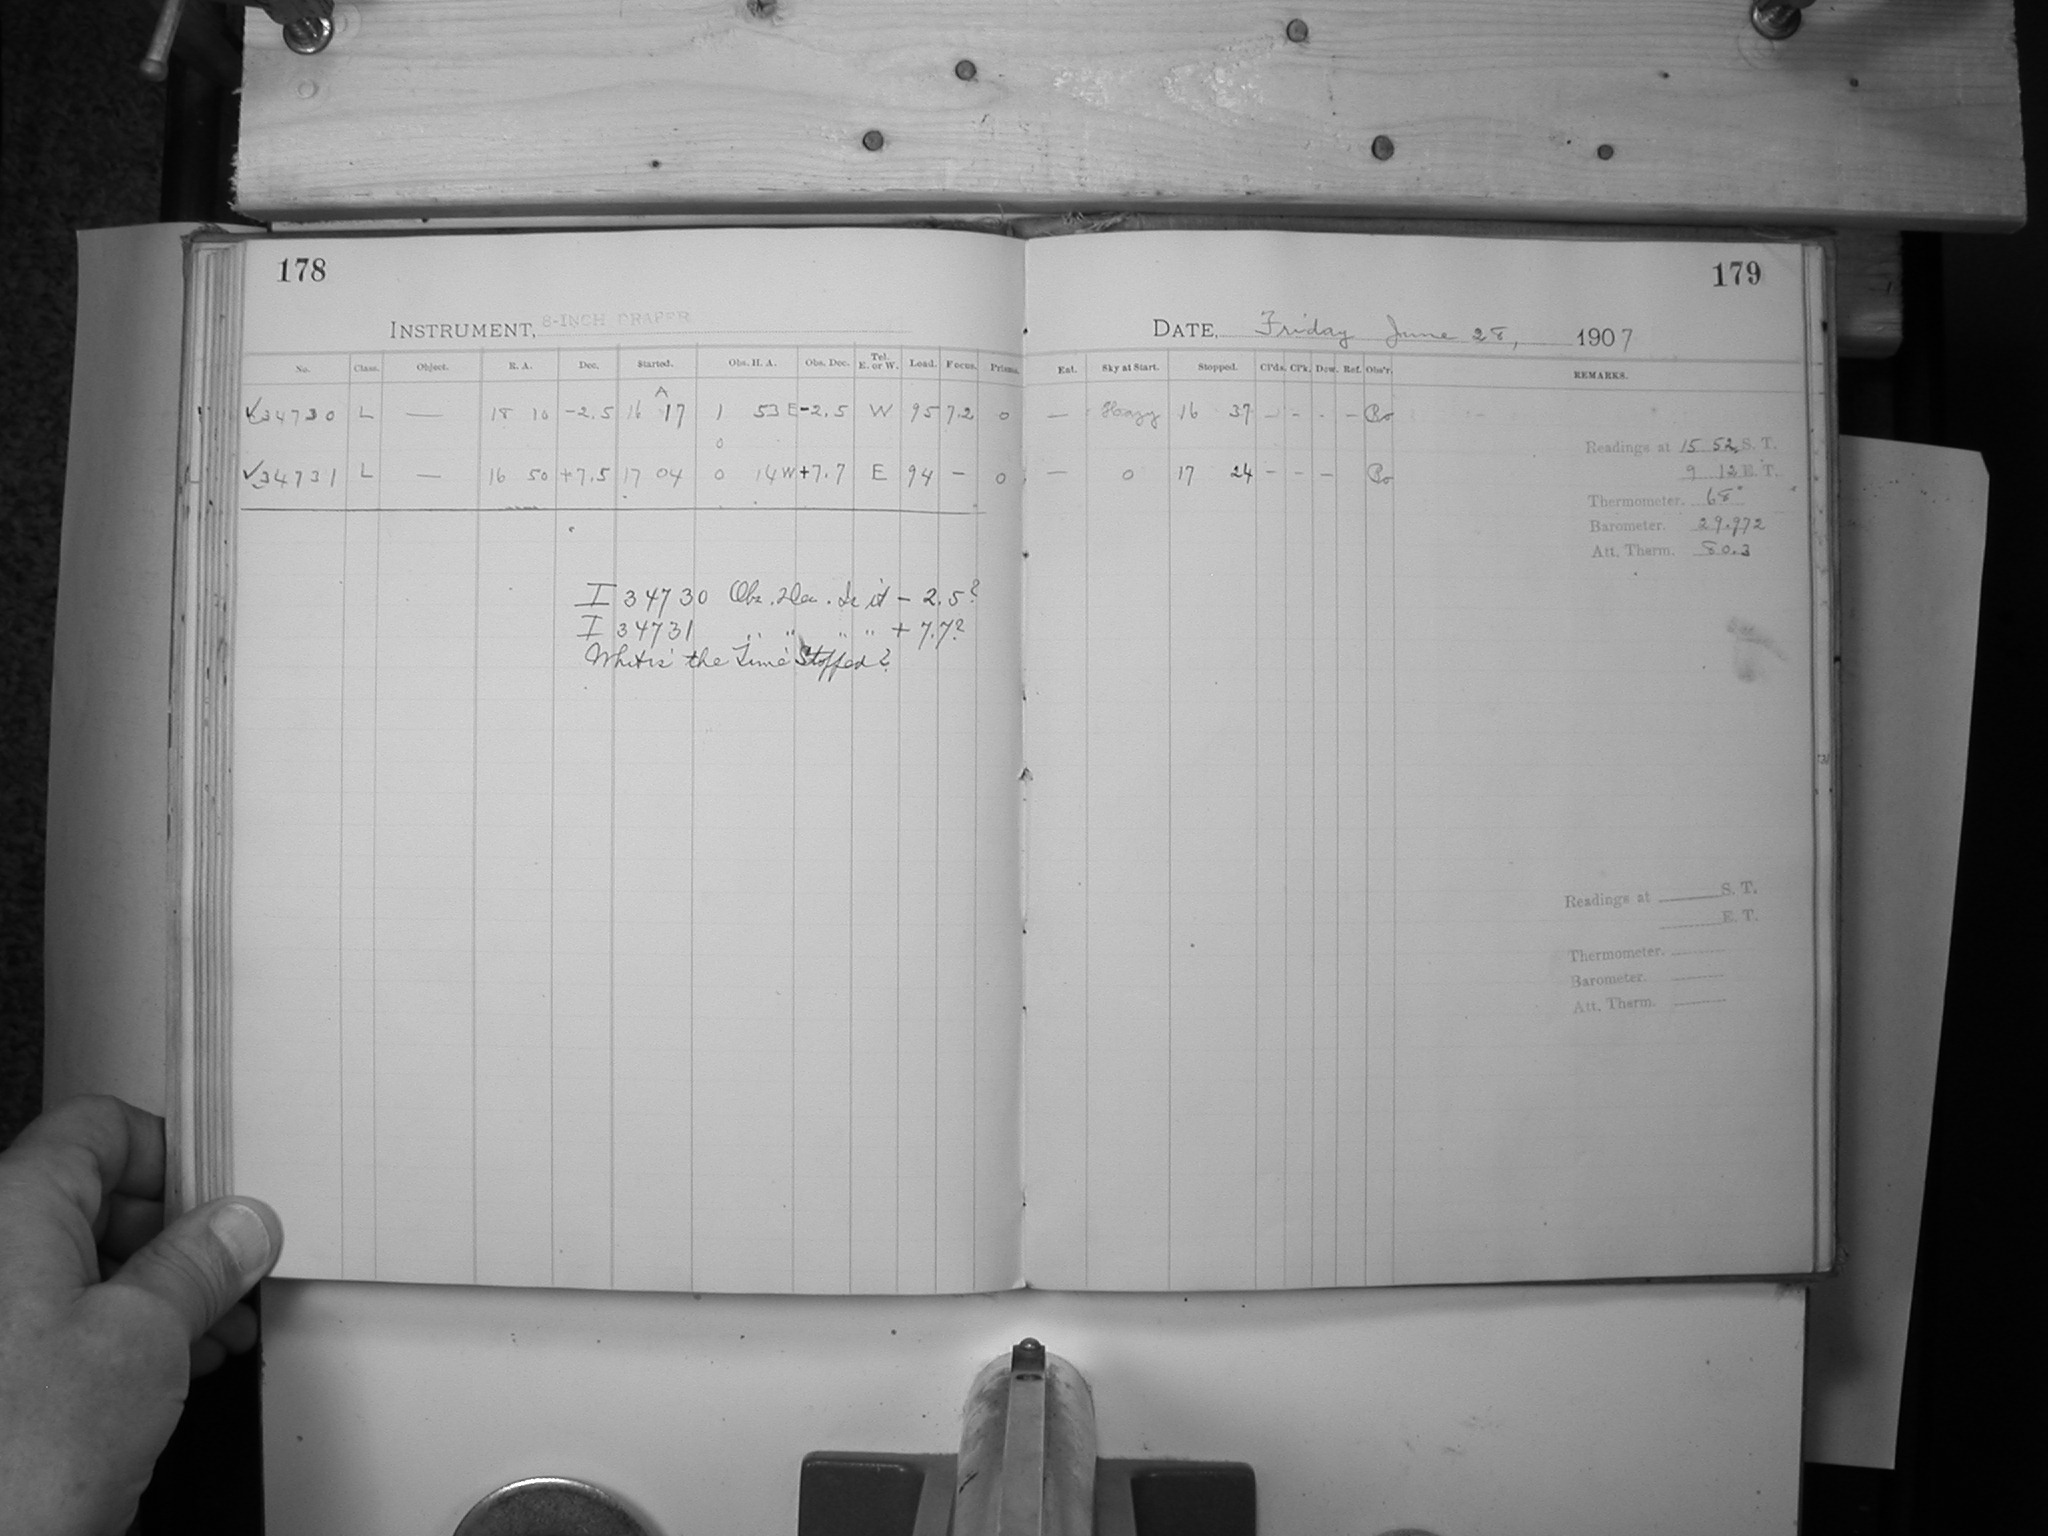 178
INSTRUMENT, 8-INCH DRAPER
No. Class. Object. R. A. Dec. Started. Obs. H. A. Obs. Dec. Tel. E. or W. Load. Focus. Prisms.
✓34730 L — 18 10 -2.5 16 17 1 53 E -2.5 W 95 7.2 0
0
✓34731 L — 16 50 +7.5 17 04 0 14 W +7.7 E 94 — 0
I 34730 Obs. Dec. Is it - 2.5?
I 34731 " " " " + 7.7?
What is the Time Stopped?
179
DATE, Friday June 28, 1907
Ext. Sky at Start. Stopped. Cl'ds. Cl'k. Dew. Ref. Obs'r. REMARKS.
— Hazy 16 37 - - - -
— 0 17 24 - - -
Readings at 15 52 S. T.
9 12 E. T.
Thermometer. 68°
Barometer. 29.972
Att. Therm. 80.3
Readings at S. T.
E. T.
Thermometer.
Barometer.
Att. Therm.